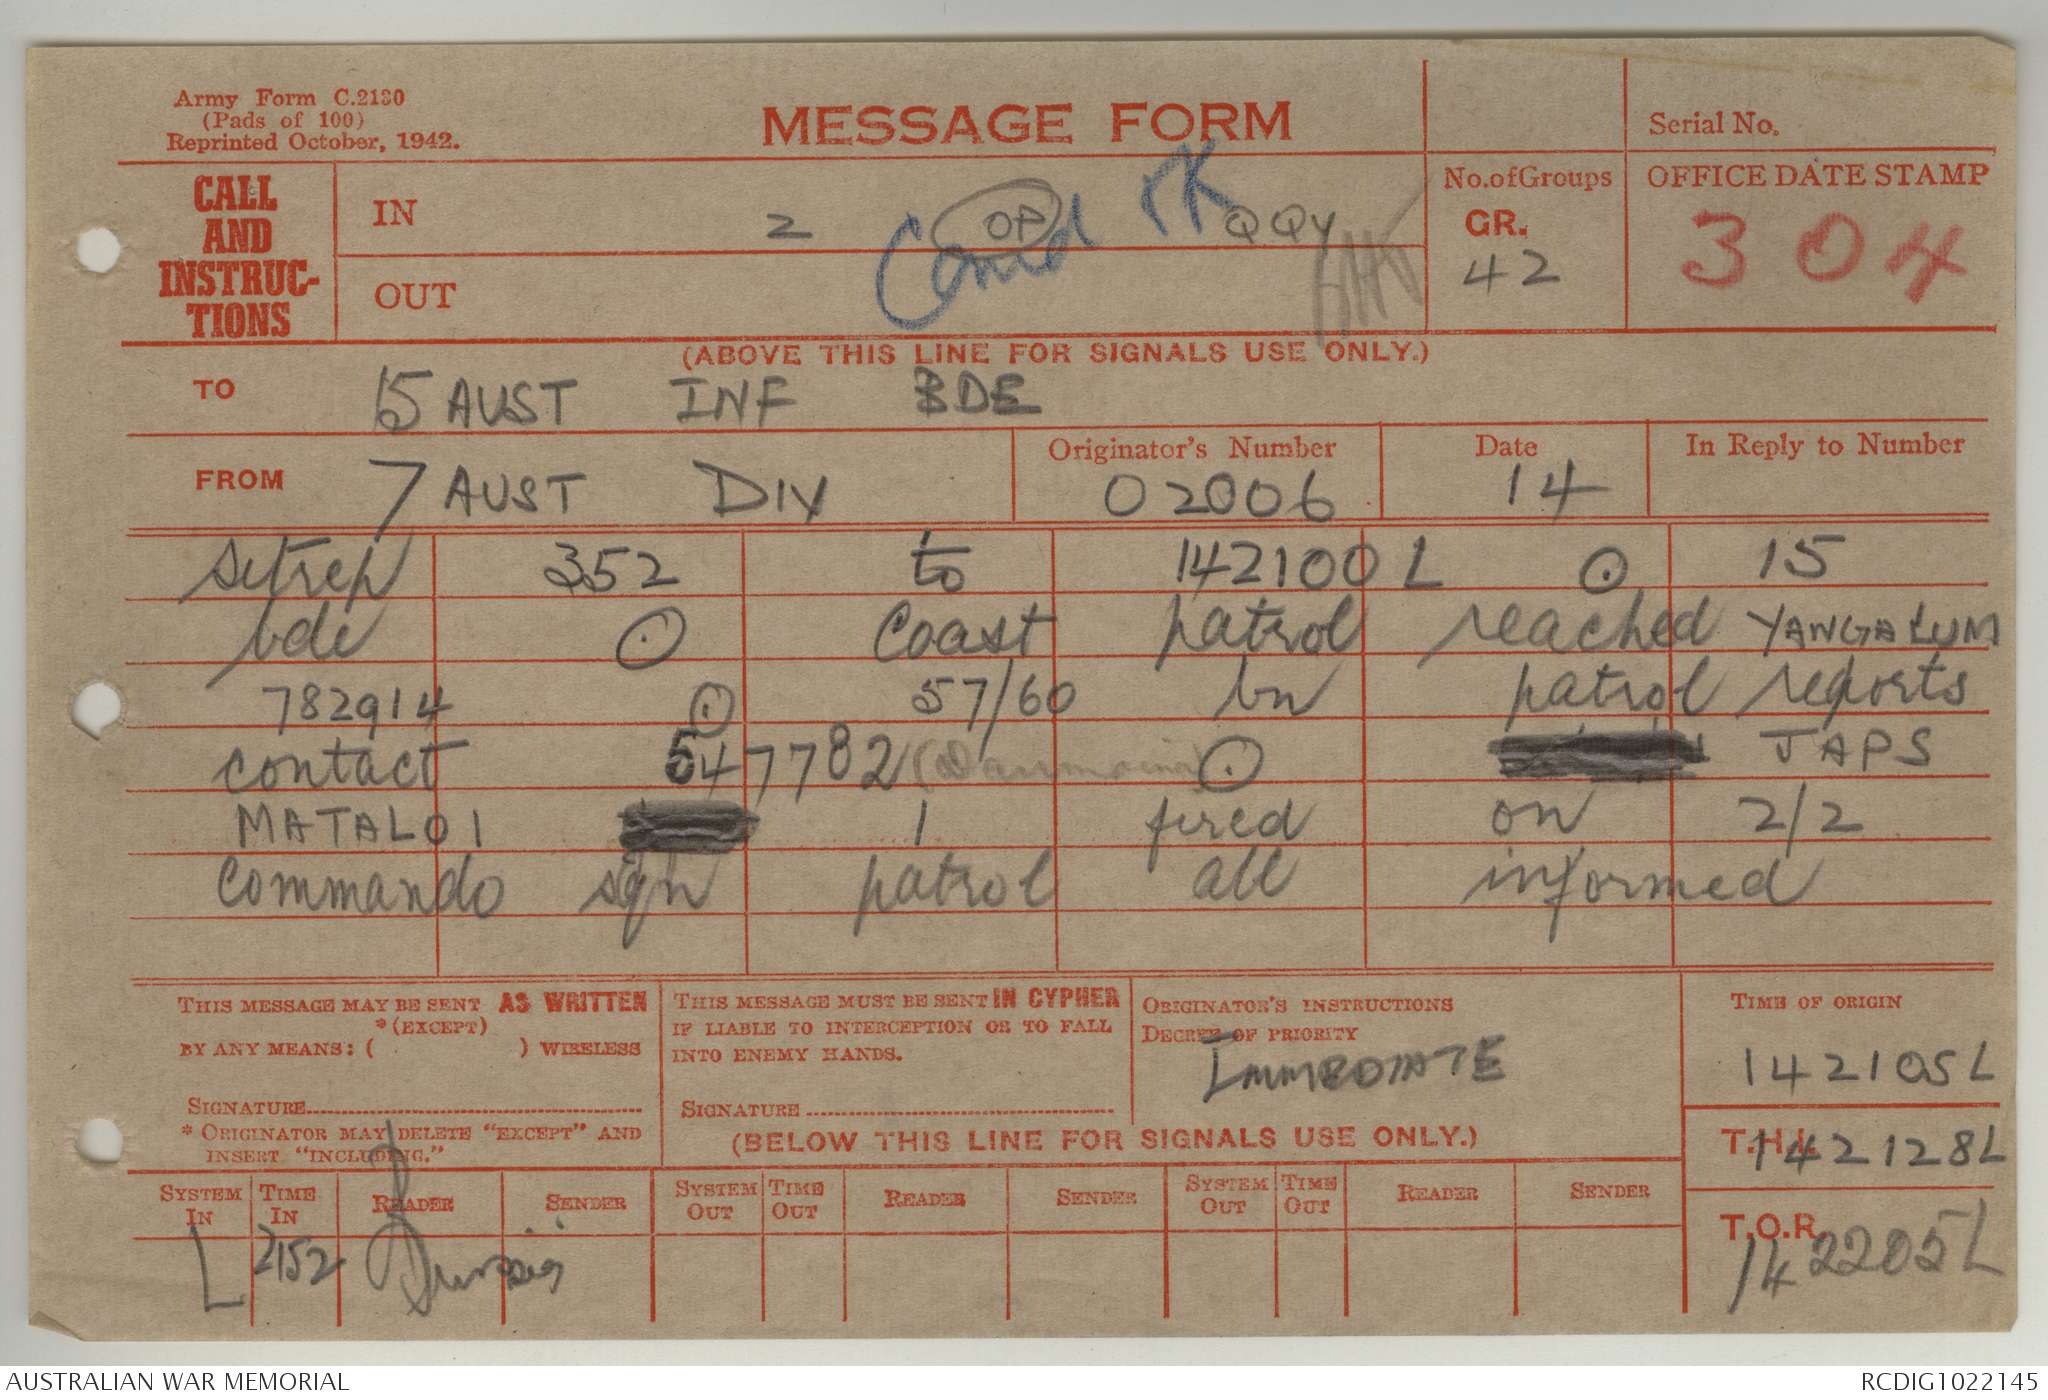 Army Form C.2130
(Pads of 100)
Reprinted October, 1942.
MESSAGE FORM
Serial No.
CALL AND INSTRUC-TIONS
IN
2 OP QQY
Comd
OUT
No. of Groups
GR.
42
OFFICE DATE STAMP
304
(ABOVE THIS LINE FOR SIGNALS USE ONLY.)
TO 15 AUST INF BDE
FROM 7 AUST DIV
Originator's Number
02006
Date
14
In Reply to Number
sitrep 352 to 142100 L ⊙ 15
bde ⊙ Coast patrol reached YANGALUM
782914 ⊙ 57/60 bn patrol reports
contact 547782 ⊙ JAPS
MATALOI 1 fired on 2/2
commando sqn patrol all informed
THIS MESSAGE MAY BE SENT AS WRITTEN
*(EXCEPT)
BY ANY MEANS: ( ) WIRELESS
SIGNATURE
* ORIGINATOR MAY DELETE "EXCEPT" AND
INSERT "INCLUDING."
THIS MESSAGE MUST BE SENT IN CYPHER
IF LIABLE TO INTERCEPTION OR TO FALL
INTO ENEMY HANDS.
SIGNATURE
ORIGINATOR'S INSTRUCTIONS
DEGREE OF PRIORITY
IMMEDIATE
TIME OF ORIGIN
142105L
(BELOW THIS LINE FOR SIGNALS USE ONLY.)
T.H.I.
142128L
SYSTEM IN TIME IN READER SENDER SYSTEM OUT TIME OUT READER SENDER SYSTEM OUT TIME OUT READER SENDER
L 2152
T.O.R.
142205L
AUSTRALIAN WAR MEMORIAL
RCDIG1022145